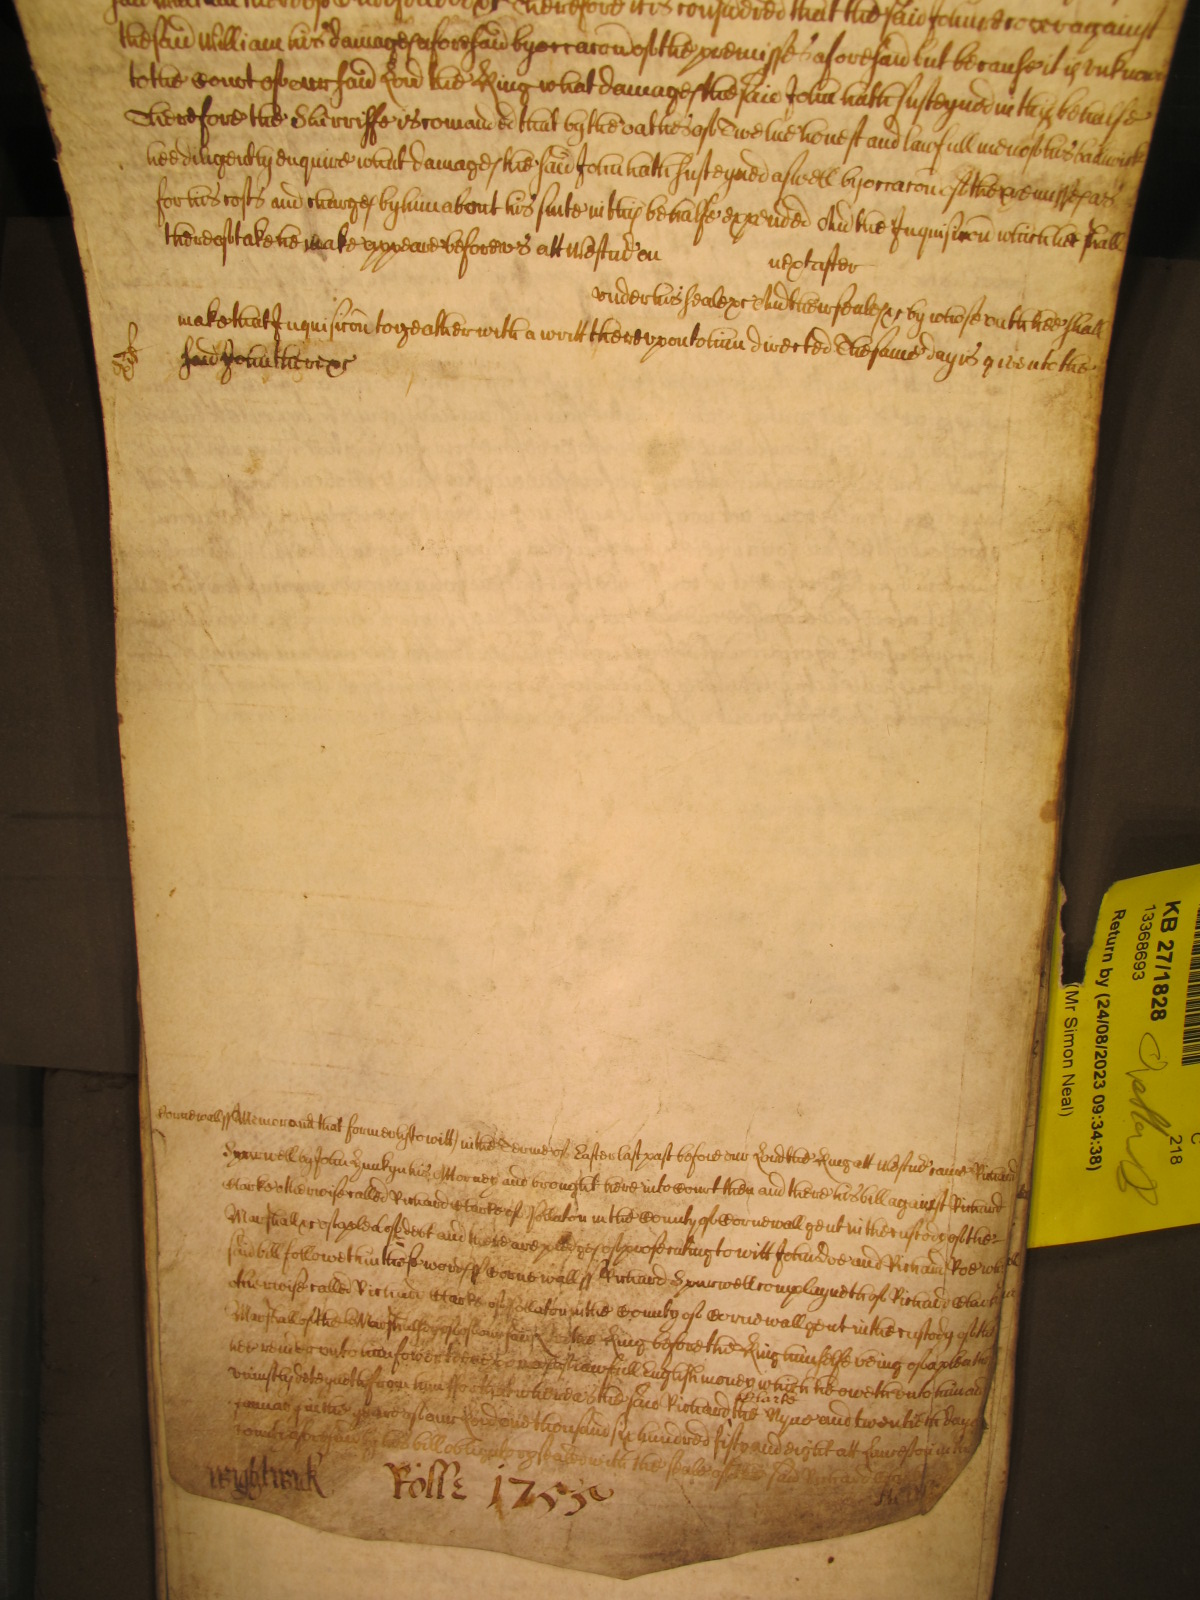 Therefore it is considered that the said John recover against
the said William his damages aforesaid by occacon of the premisses aforesaid but because it is unknowne
to the Court of our said Lord the King what damages the said John hath susteyned in this behalfe
Therefore the Sherriffe is comanded that by the oathes of Twelve honest and lawfull men of his bailiwick
hee diligently enquire what damages the said John hath susteyned aswell by occacon of the premisses afs
for his costs and charges by him about his suite in this behalfe expended And the Inquisicon which hee shall
thereof take he make appeare before us att Westmr on
next after
under his seale &c And the seales &c by whose oath hee shall
make that Inquisicon togeather with a writt thereupon to him directed The same day is given to the
said John there &c
Cornewall ss Memorand that formerly to witt in the Terme of Easter last past before our Lord the King att Westmr came Richard
Spurwell by John Hunkyn his Attorney and brought here into Court then and there his bill against Richard
Clarke otherwise called Richard Clarke of in the County of Cornewall gent in the custody of the
Marshall &c of a plea of debt and there are pledges of prosecuting to witt John Doe and Richard Roe which
said bill followeth in these words ss Cornewall ss Richard Spurwell complayneth of Richard Clarke
otherwise called Richard Clarke of in the County of Cornewall gent in the custody of the
Marshall of the Marshalsey of our said Lord the King before the King himselfe being of a plea that
hee render unto him of lawfull English money which he oweth unto him and
uniustly deteyneth from him For that whereas the said Richard Clarke the Nyne and twentieth day of
in the yeare of our Lord one thousand six hundred fifty and eight att Lanceston in the
County aforesaid by his bill obligatory sealed with the seale of the said Richard
Wightwick Rolle 1755
KB 27/1828
13368693
Return by (24/08/2023 09:34:38)
(Mr Simon Neal)
218